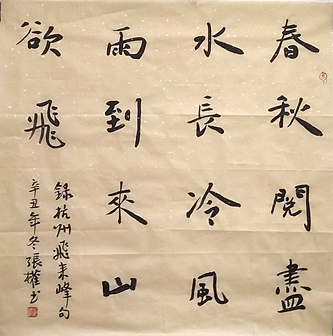 春秋閱盡
水長冷風
雨到來山
欲飛
錄杭州飛來峰句
辛丑年冬張權书